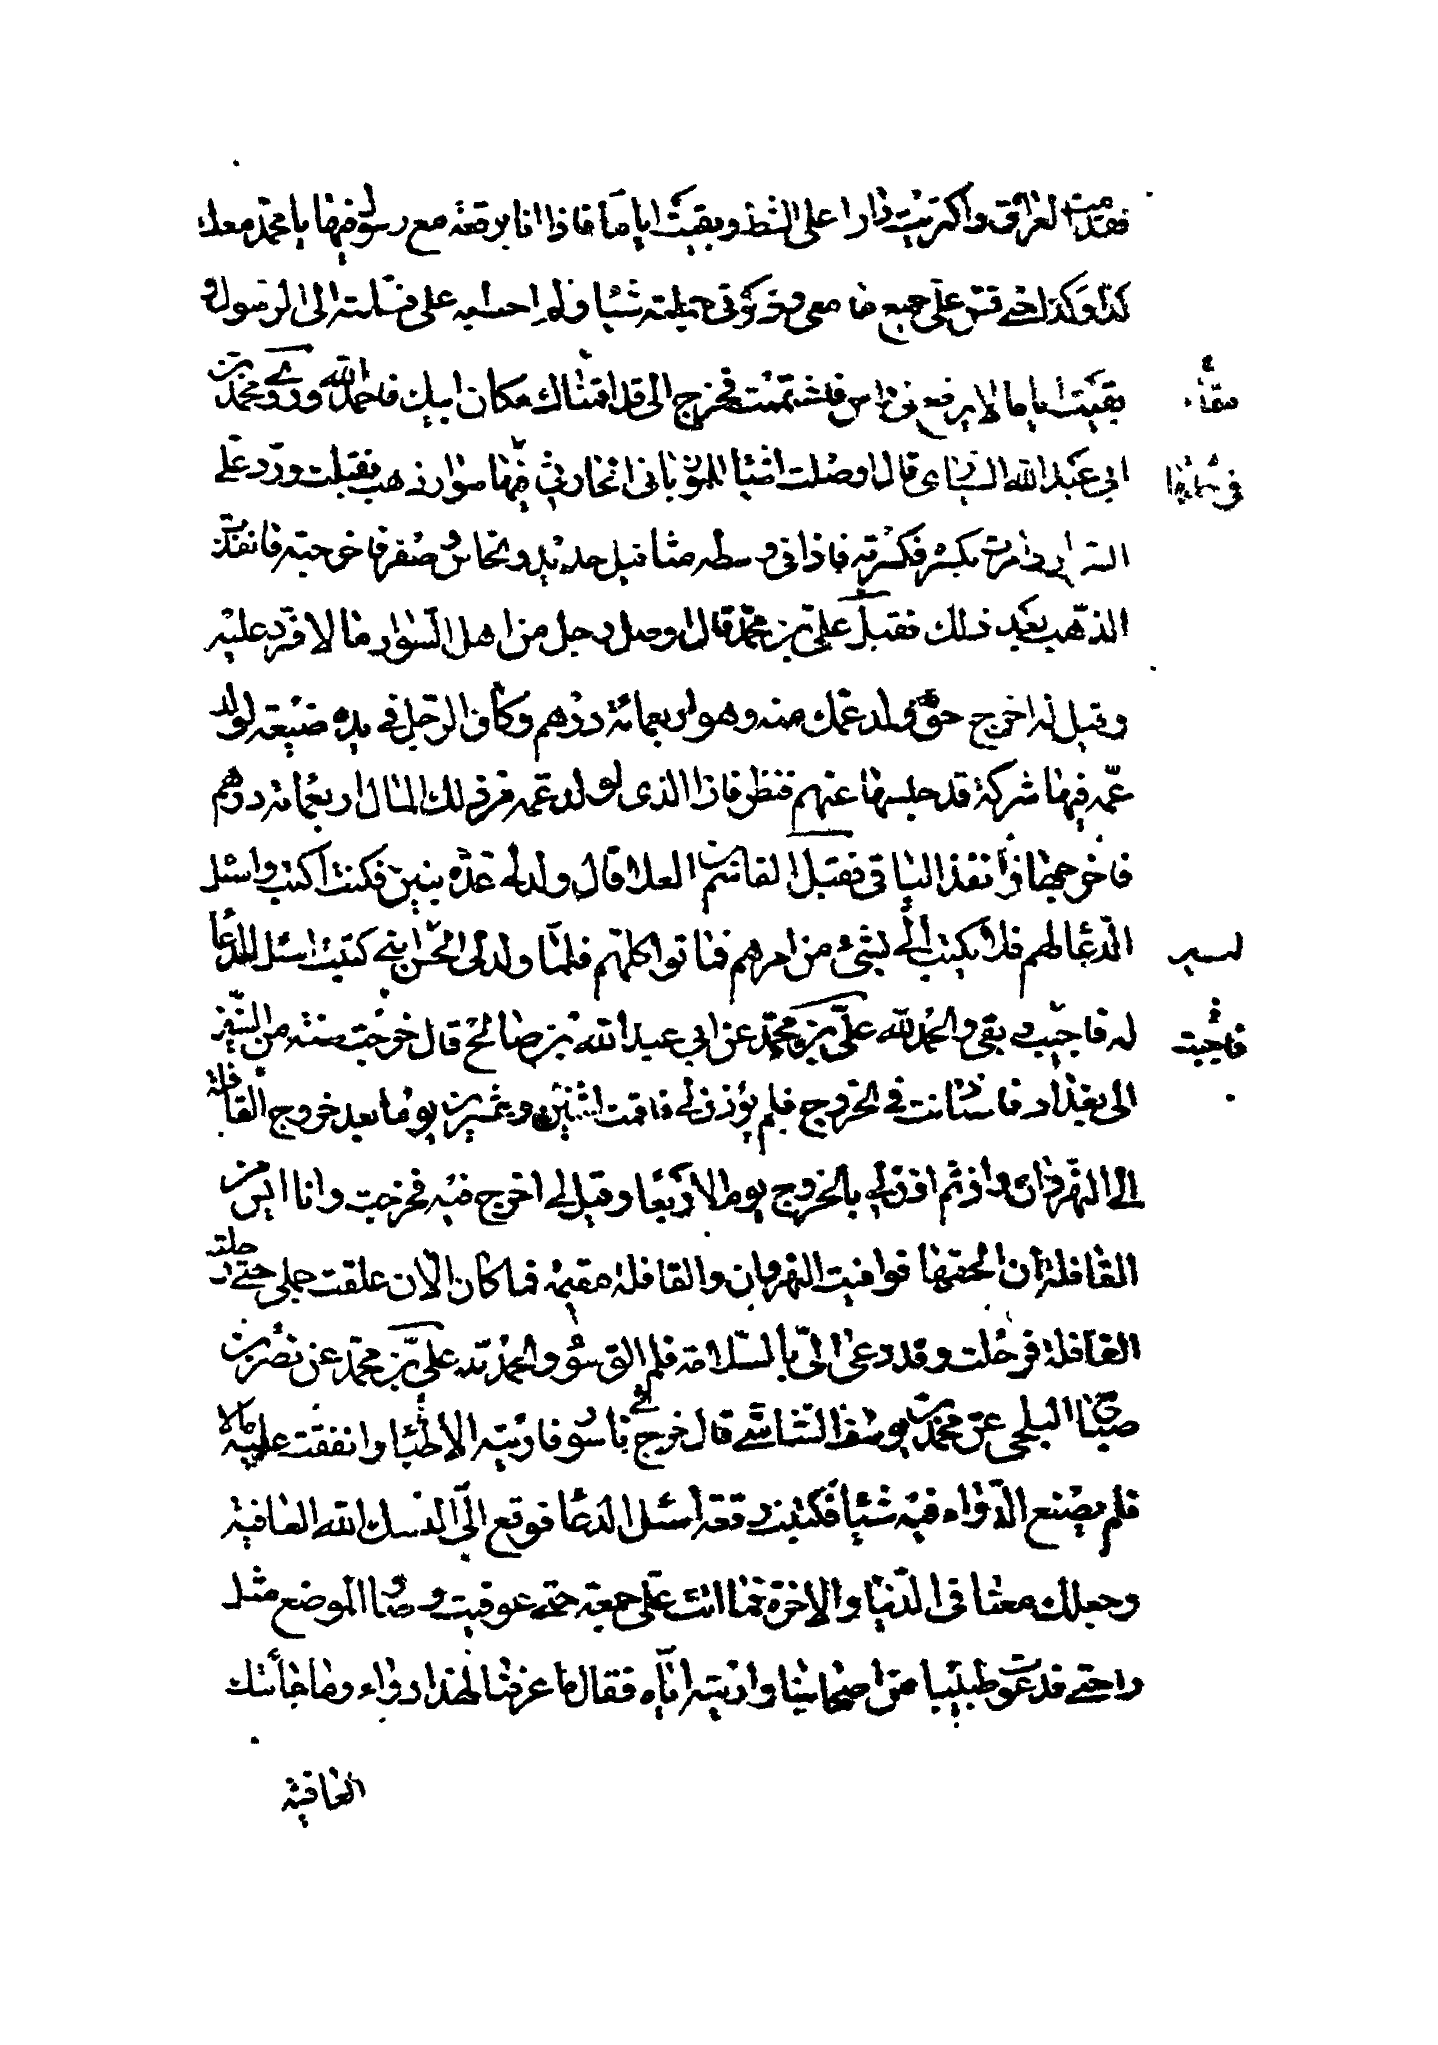 فقدمت العراق واكتريت دارا على الشط وبقيت اياما فاذا انا برقعة مع رسول فيها يا محمد معك
كذا وكذا حتى قص على جميع ما معى وذكر فى جملته شيئا ولم احط به على فسلمته الى الرسول و
بقيت اياما لا يرفع بى راس فاغتممت فخرج الى قد اقمناك مكان ابيك فاحمد الله وروى محمد بن
ابى عبد الله النسائى قال اوصلت اشياء للمرزبانى الحارثى فيها سوار ذهب فقبلت ورد على
السوار وامرت بكسره فكسرته فاذا فى وسطه مثاقيل حديد ونحاس وصفر فاخرجته فانفذت
الذهب بعد ذلك فقبل على بن محمد قال اوصل رجل من اهل السواد مالا فرد عليه
وقيل له اخرج حق ولد عمك منه وهو اربعمائة درهم وكان الرجل فى يده ضيعة لولد
عمه فيها شركة قد حبسها عنهم فنظر فاذا الذى لولد عمه من ذلك المال اربعمائة درهم
فاخرجها وانفذ الباقى فقبل القاسم بن العلا قال ولد لى عدة بنين فكنت اكتب واسئل
الدعا لهم فلا يكتب الى لشئ من امرهم فماتوا كلهم فلما ولد لى الحسن ابنى كتبت اسئل الدعا
له فاجبت بقى والحمد لله على بن محمد عن ابى عبد الله بن صالح قال خرجت سنة من السنين
الى بغداد فاستاذنت فى الخروج فلم يؤذن لى فاقمت اثنين وعشرين يوما بعد خروج القافلة
الى النهروان واذ ثم اذن لى بالخروج يوم الاربعا وقيل لى اخرج فيه فخرجت وانا ايس من
القافلة ان الحقها فوافيت النهروان والقافلة مقيمة فما كان الا ان علقت جملى حتى رحلت
القافلة فرحلت وقد دعى لى بالسلامة فلم الق سؤ والحمد لله على بن محمد عن نصر بن
صباح البلخى عن محمد بن يوسف الشاشى قال خرج بى ناسور فاريته الاطباء وانفقت عليه مالا
فلم يصنع الدواء فيه شيئا فكتبت رقعة اسئل الدعا فوقع الى البسك الله العافية
وجعلك معنا فى الدنيا والاخرة فما اتت على جمعة حتى عوفيت وصار الموضع مثل
راحتى فدعوت طبيبا من اصحابنا واريته اياه فقال ما عرفنا لهذا دواء وما جاءتك
العافية
فاجبت